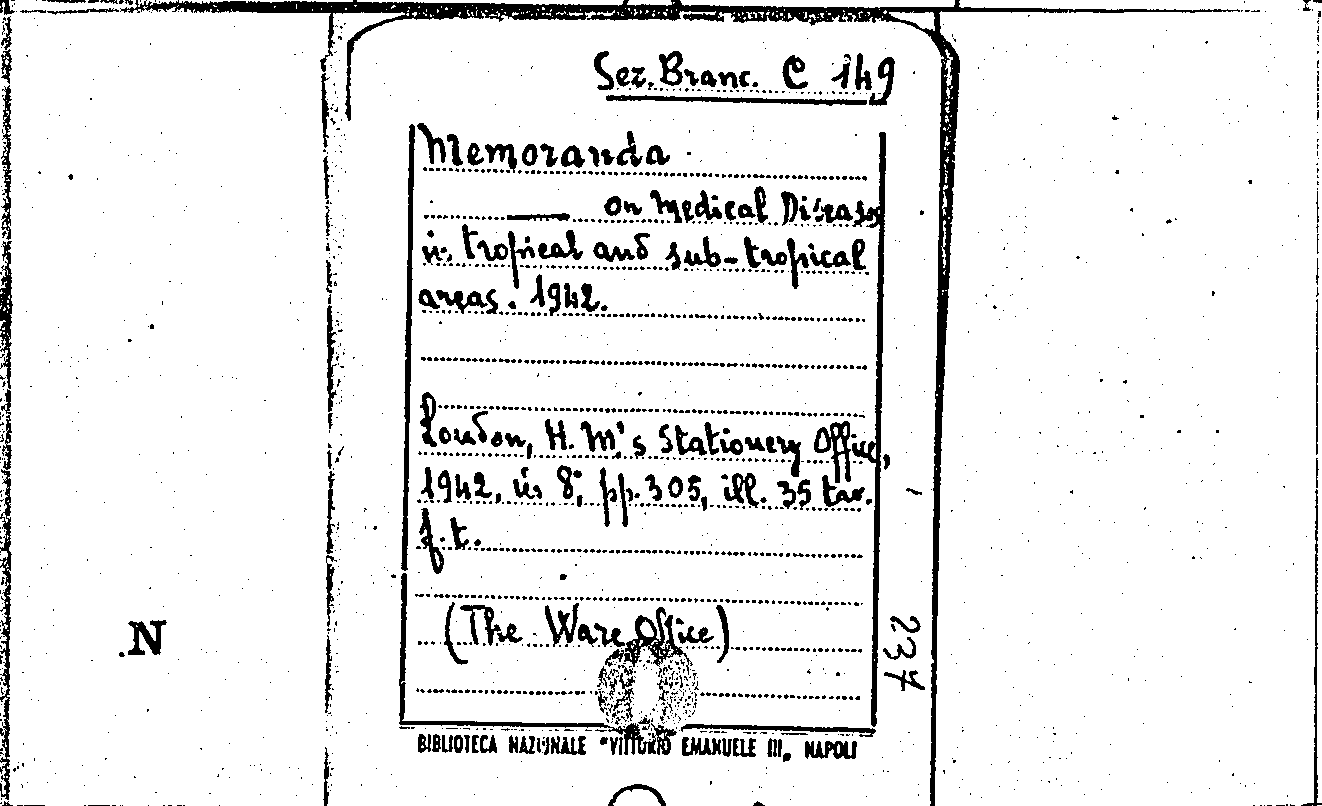 Sez. Branc. C 149
Memoranda
— on Medical Diseases
in tropical and sub-tropical
areas. 1942.
London, H. M.'s Stationery Office,
1942, in 8°, pp. 305, ill. 35 tav.
f. t.
(The Ware Office)
237
N
BIBLIOTECA NAZIONALE "VITTORIO EMANUELE III„ NAPOLI